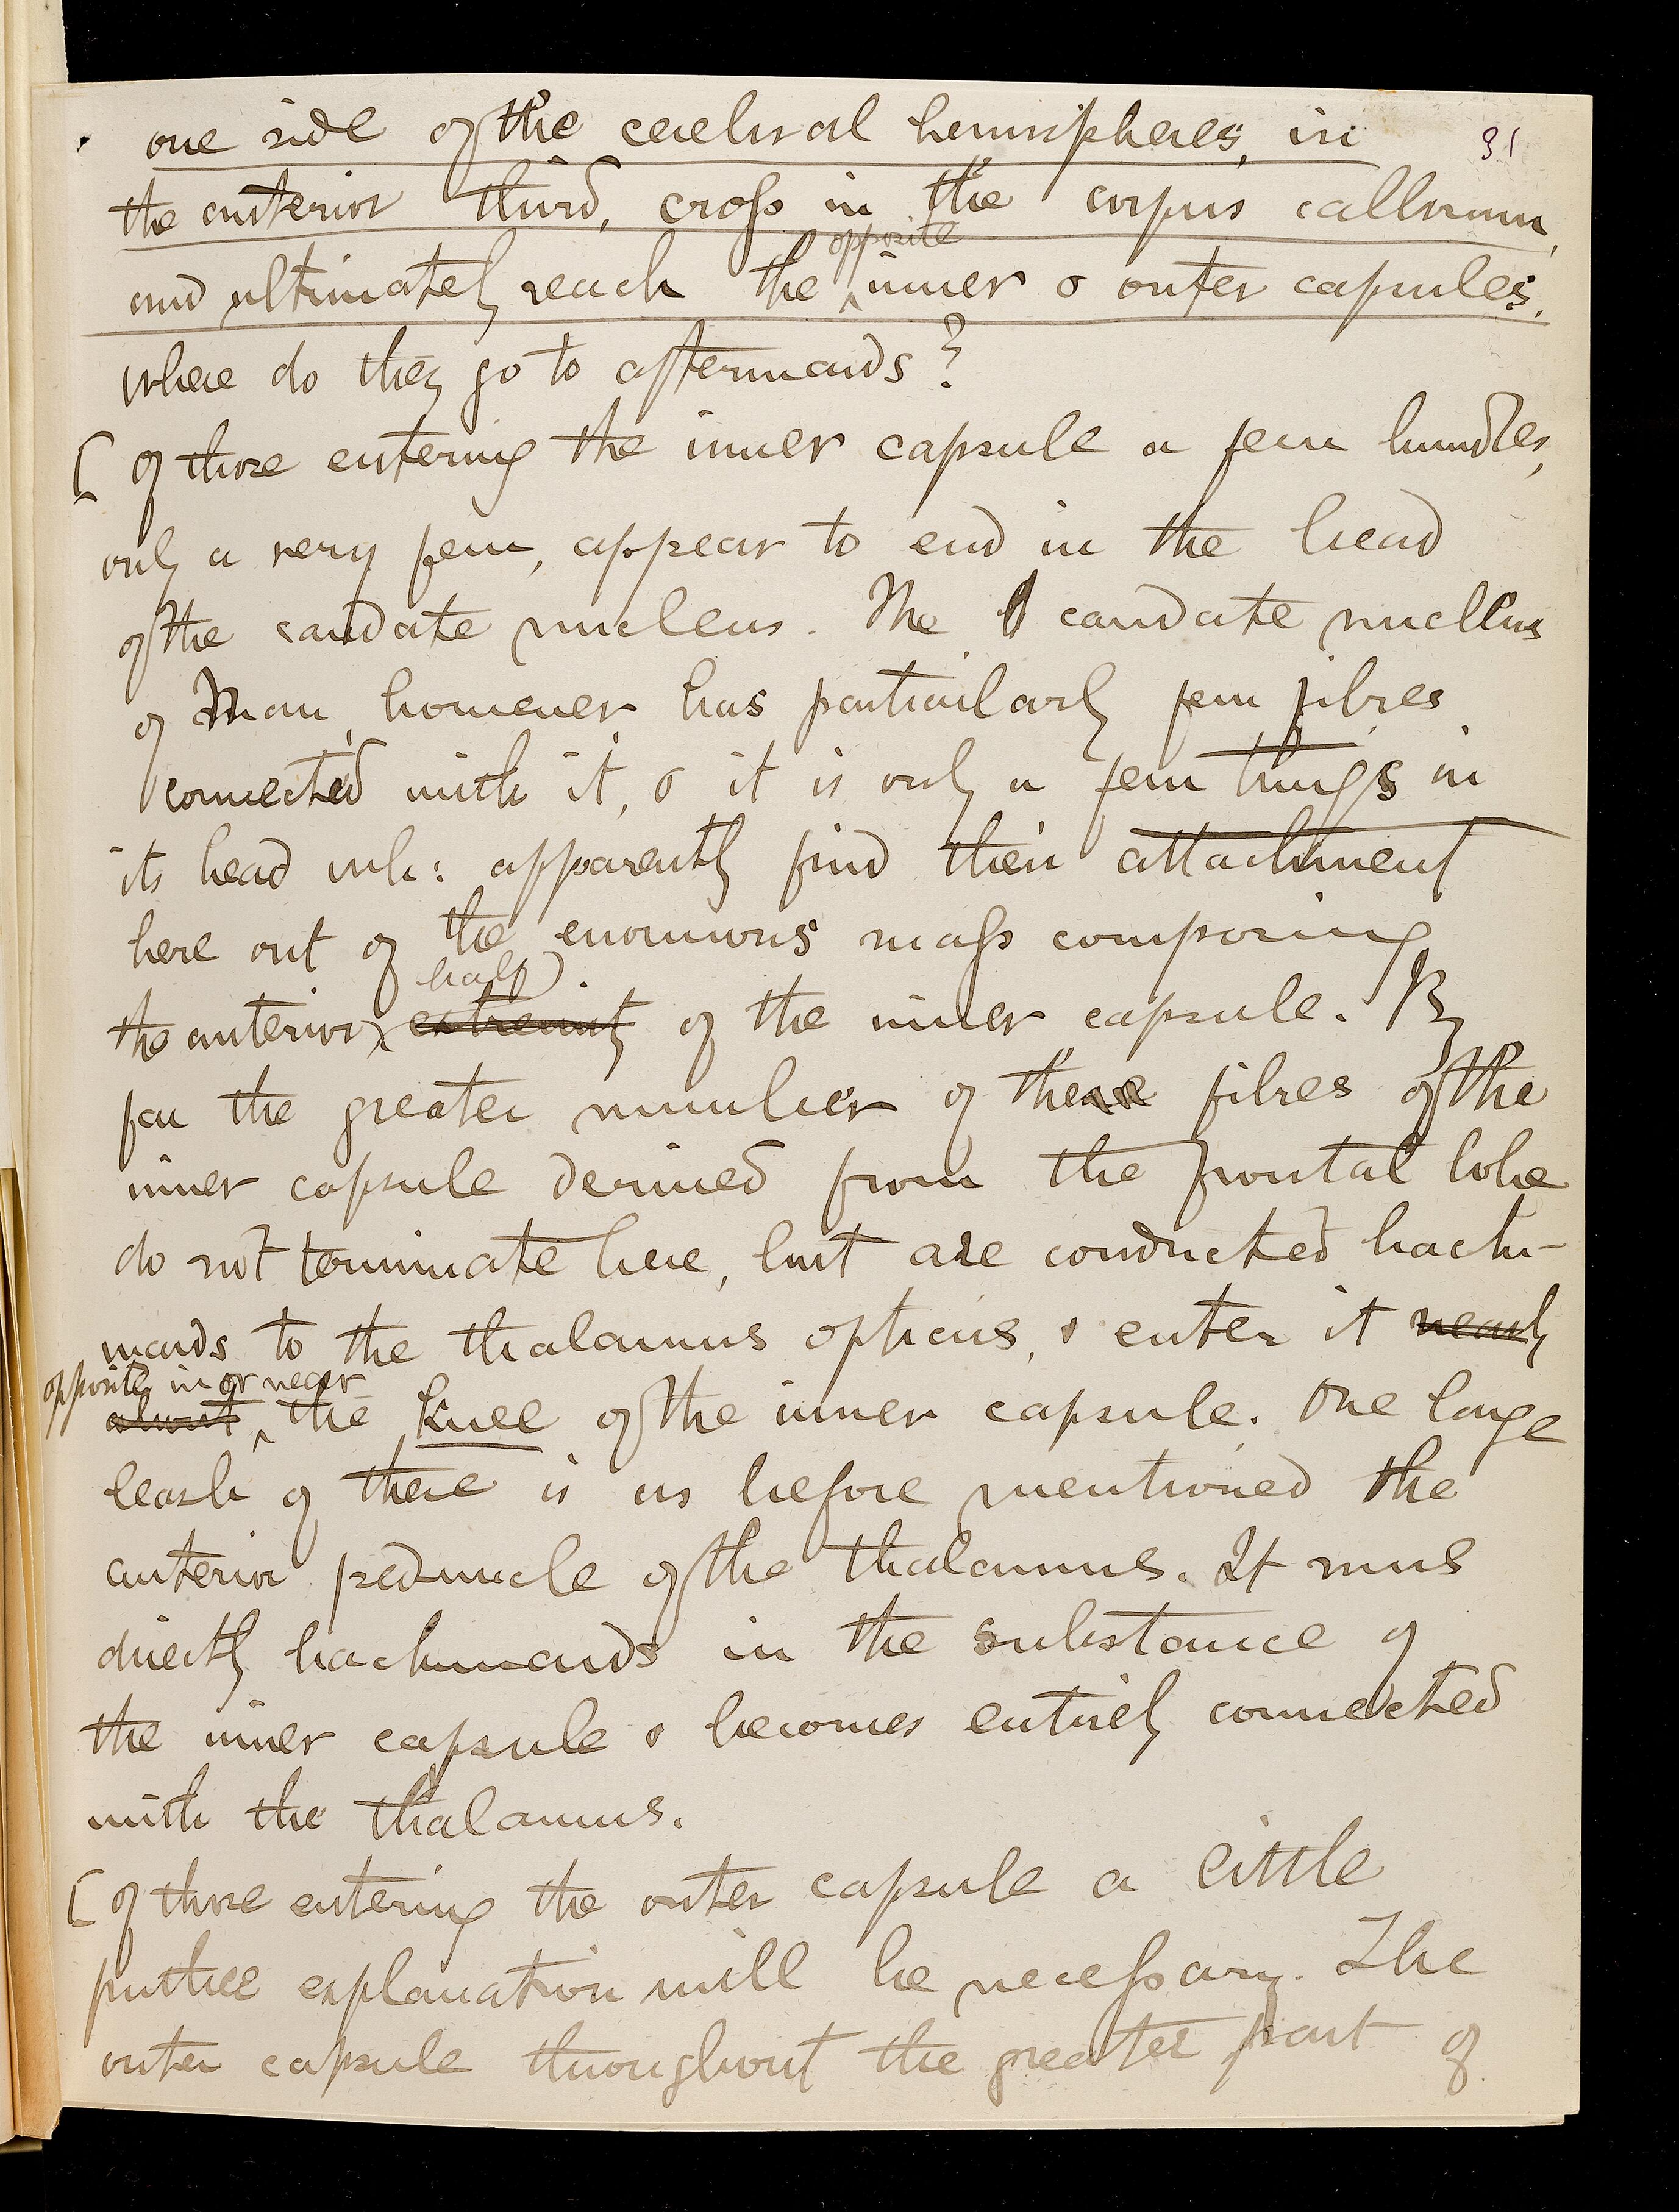 31
one side of the cerebral hemispheres, in
the anterior third, cross in the corpus callosum,
opposite
and ultimately reach the ‸ inner & outer capsules.
Where do they go to afterwards?
[ Of those entering the inner capsule a few bundles,
only a very few, appear to end in the head
of the caudate nucleus. The caudate nucleus
of Man, however has particularly few fibres
connected with it, & it is only a few things in
its head wh: apparently find their attachment
here out of the enormous mass composing
half
the anterior ‸ extremity of the inner capsule. By
far the greater number of these fibres of the
inner capsule derived from the frontal lobe
do not terminate here, but are conducted back-
wards to the thalamus opticus, & enter it nearly
opposite, in or near
about ‸ the knee of the inner capsule. One large
leash of these is as before mentioned the
anterior peduncle of the thalamus. It runs
directly backwards in the substance of
the inner capsule & becomes entirely connected
with the thalamus.
[ Of those entering the outer capsule a little
further explanation will be necessary. The
outer capsule throughout the greater part of